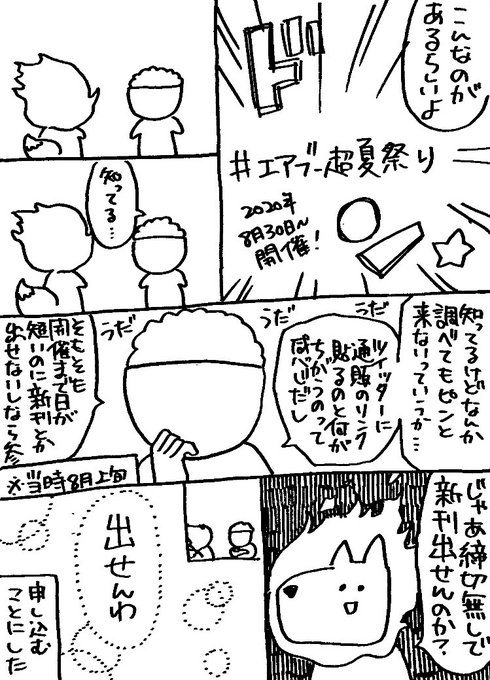 こんなのが
あるらしいよ
ド
#エアブー超夏祭り
2020年
8月30日〜
開催!
知ってる…
知ってるけどなんか
調べてもピンと
来ないっていうか…
うだ
ツイッターに
通販のリンク
貼るのと何が
ちがうのって
かんじだし
うだ
うだ
そもそも
開催まで日が
短いのに新刊とか
出せないしなら参
※当時8月上旬
じゃあ締切無しで
新刊出せんのか?
出せんわ
申し込む
ことにした